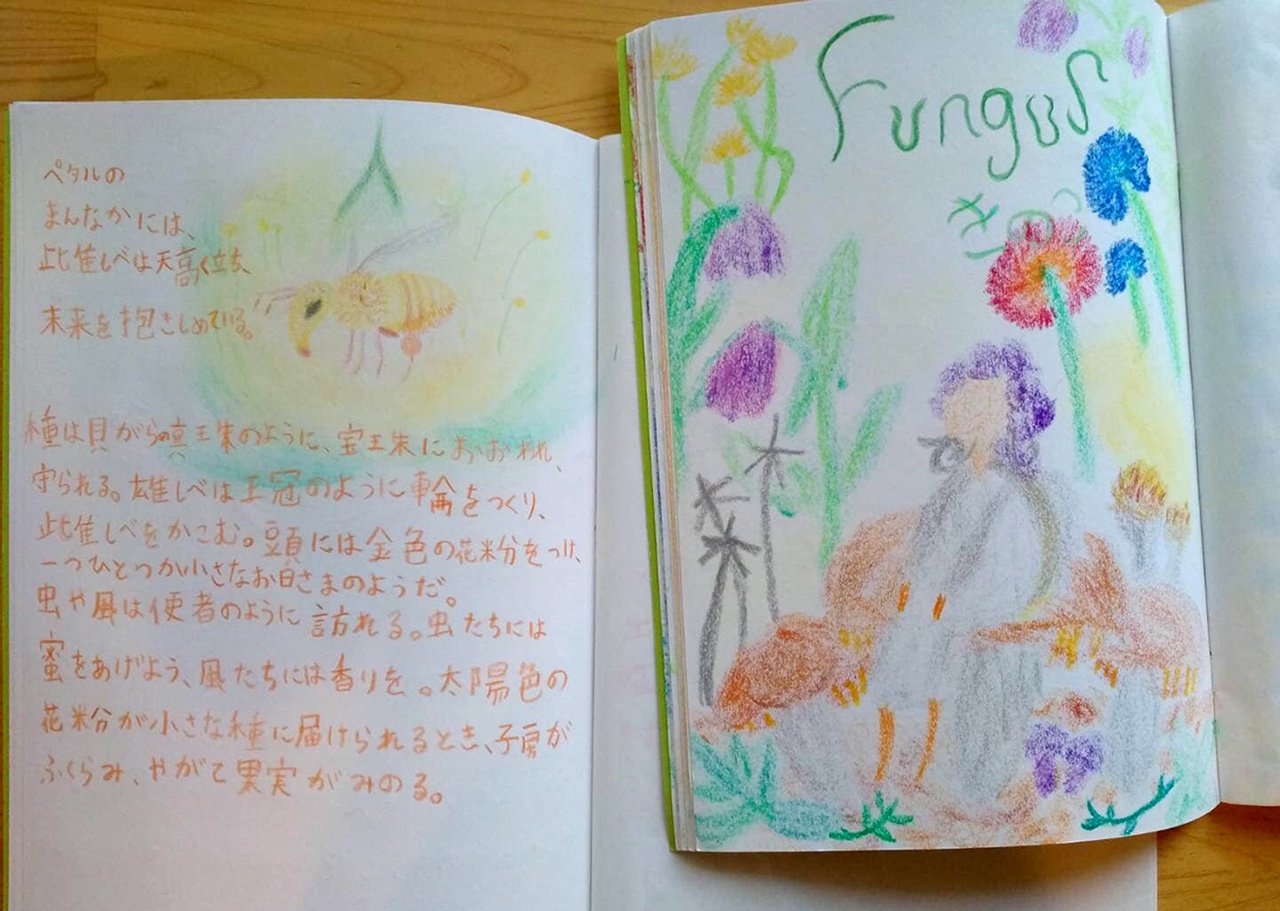 ペタルの
まんなかには、
雌しべは天高く立ち、
未来を抱きしめている。
種は貝がらの真珠のように、宝珠におおわれ、
守られる。雄しべは王冠のように輪をつくり、
雌しべをかこむ。頭には金色の花粉をつけ、
一つひとつが小さなお日さまのようだ。
虫や風は使者のように訪れる。虫たちには
蜜をあげよう、風たちには香りを。太陽色の
花粉が小さな種に届けられるとき、子房が
ふくらみ、やがて果実がみのる。
Fungus
きのこ